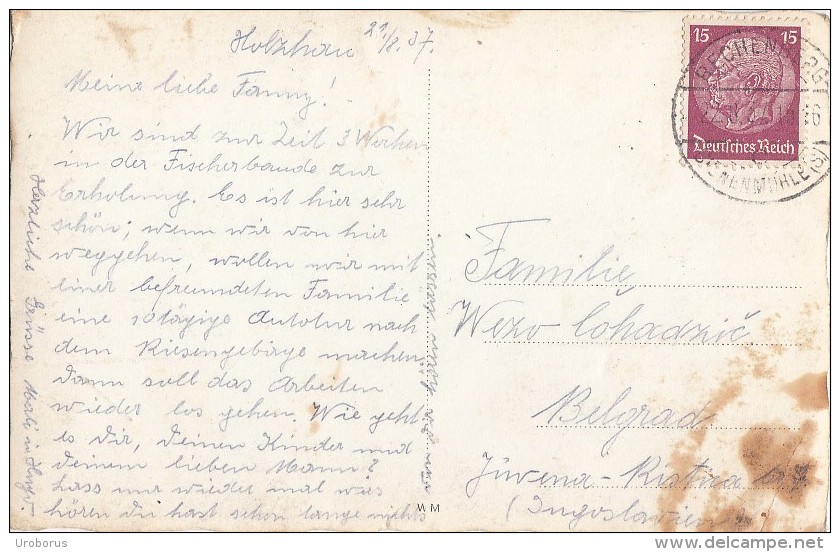 Holzhau 21/8.37.
Meine liebe Fanny!
Wir sind zur Zeit 3 Wochen
in der Fischerbaude zur
Erholung. Es ist hier sehr
schön; wenn wir von hier
weggehen, wollen wir mit
einer befreundeten Familie
eine 10tägige Autotur nach
dem Riesengebirge machen.
Dann soll das Arbeiten
wieder los gehen. Wie geht
es Dir, Deinen Kinder und
Deinem lieben Mann?
Lass nur wieder mal was
hören Du hast schon lange nichts
Herzliche Grüsse
15 15
Deutsches Reich
Familie
Wezo Cohadzič
Belgrad
Juvena-Ristica
(Jugoslavien)
WM
Uroborus
www.delcampe.net